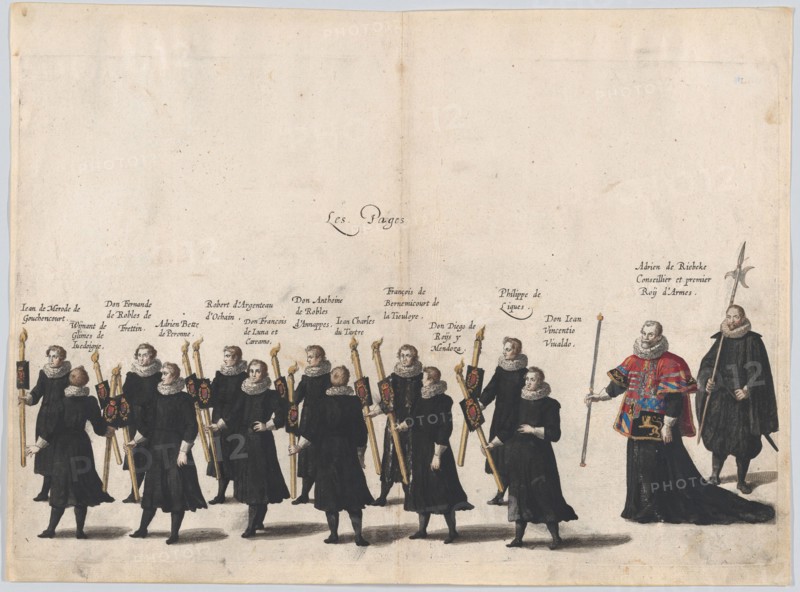 Les Pages
Iean de Merode de
Gouchencourt.
Wijnant de
Glimes de
Don Fernande
de Robles de
Trettin.
Adrien Bette
de Peronne.
Robert d'Argenteau
d'Ochain.
Don François
de Luna et
Carcamo.
Don Anthoine
de Robles
d'Annappes.
Iean Charles
du Tartre
François de
Bernemicourt de
la Tieuloye.
Don Diego de
Roijs y
Mendoza.
Philippe de
Liques.
Don Iean
Vincentio
Viualdo.
Adrien de Riebeke
Conseillier et premier
Roij d'Armes.
PHOTO12